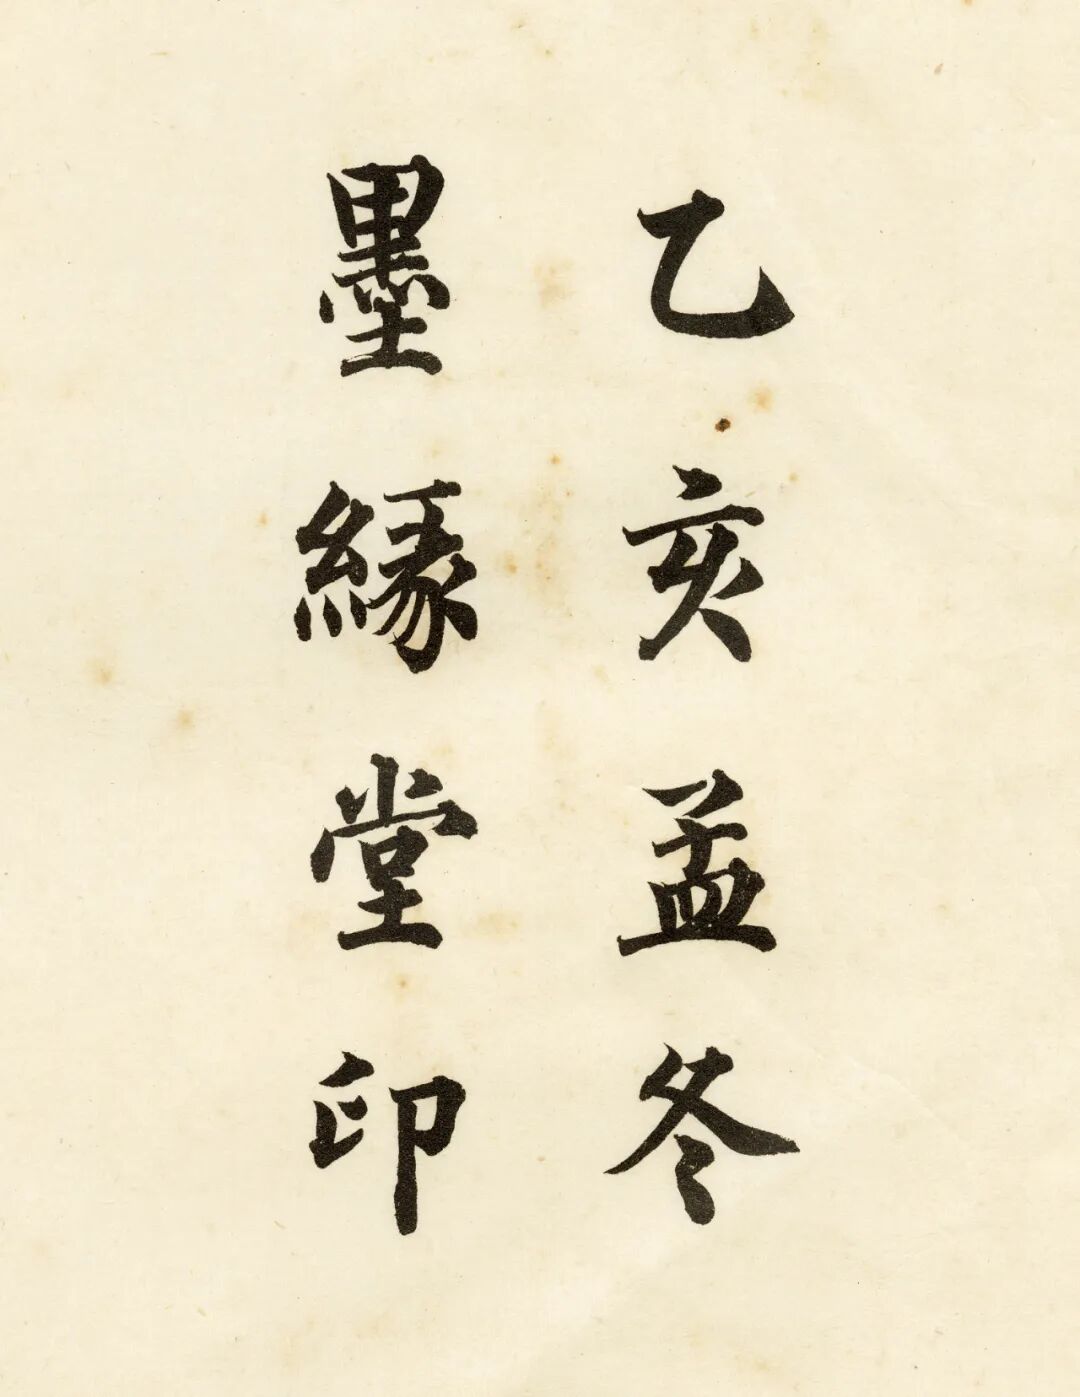 乙亥孟冬
墨緣堂印